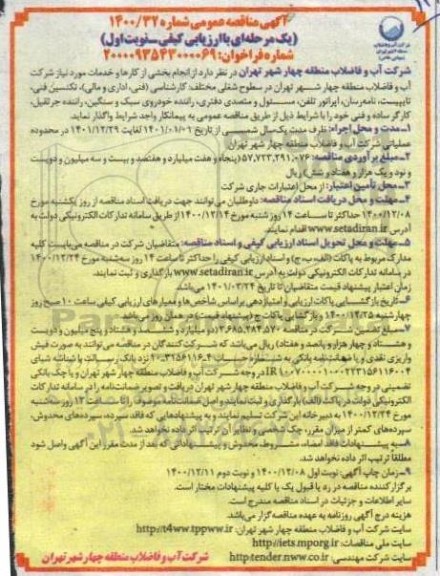 آگهی مناقصه عمومی شماره ۱۴۰۰/۳۲
(یک مرحله‌ای با ارزیابی کیفی-نوبت اول)
شماره فراخوان: ۲۰۰۰۰۹۳۵۴۳۰۰۰۰۶۹
شرکت آب و فاضلاب منطقه چهار شهر تهران در نظر دارد از انجام بخشی از کارها و خدمات مورد نیاز شرکت
آب و فاضلاب منطقه چهار شهر تهران در سطوح شغلی مختلف: کارشناسی (فنی، اداری و مالی)، تکنسین فنی،
تایپیست، نامه‌رسان، اپراتور تلفن، مسئول و متصدی دفتری، راننده خودروی سبک و سنگین، راننده جرثقیل،
کارگر ساده و فنی خود را با شرایط ذیل از طریق مناقصه عمومی به پیمانکار واجد شرایط واگذار نماید.
۱-مدت و محل اجرا: ظرف مدت یک‌سال شمسی از تاریخ ۱۴۰۱/۰۱/۰۱ لغایت ۱۴۰۱/۱۲/۲۹ در محدوده
عملیاتی شرکت آب و فاضلاب منطقه چهار شهر تهران
۲-مبلغ برآوردی مناقصه: ۵۷,۷۲۳,۲۹۱,۰۷۶ (پنجاه و هفت میلیارد و هفتصد و بیست و سه میلیون و دویست
و نود و یک هزار و هفتاد و شش) ریال
۳-محل تأمین اعتبار: از محل اعتبارات جاری شرکت
۴-مهلت و محل دریافت اسناد مناقصه: داوطلبان می‌توانند جهت دریافت اسناد مناقصه از روز یکشنبه مورخ
۱۴۰۰/۱۲/۰۸ حداکثر تا ساعت ۱۴ روز شنبه مورخ ۱۴۰۰/۱۲/۱۴ از طریق سامانه تدارکات الکترونیکی دولت به
آدرس www.setadiran.ir اقدام نمایند.
۵-مهلت و محل تحویل اسناد ارزیابی کیفی و اسناد مناقصه: متقاضیان شرکت در مناقصه می‌بایست کلیه
مدارک مربوط به پاکات (الف، ب، ج) و اسناد ارزیابی کیفی را حداکثر تا ساعت ۱۴ روز سه‌شنبه مورخ ۱۴۰۰/۱۲/۲۴
در سامانه تدارکات الکترونیکی دولت به آدرس www.setadiran.ir بارگذاری و ثبت نمایند.
زمان اعتبار پیشنهاد قیمت متقاضیان تا تاریخ ۱۴۰۱/۰۳/۲۴ می‌باشد.
۶-تاریخ بازگشایی پاکات ارزیابی و امتیازدهی براساس شاخص‌ها و معیارهای ارزیابی کیفی ساعت ۱۰ صبح روز
چهارشنبه ۱۴۰۰/۱۲/۲۵ و بازگشایی پاکات ج (پیشنهاد قیمت) در همان روز می‌باشد.
۷-مبلغ تضمین شرکت در مناقصه
واریزی نقدی و یا ضمانت‌نامه بانکی به شماره حساب
در وجه شرکت آب و فاضلاب منطقه چهار شهر تهران و یا چک بانکی
تضمینی در وجه شرکت آب و فاضلاب منطقه چهار شهر تهران دریافت و تصویر ضمانت‌نامه را در سامانه تدارکات
مورخ ۱۴۰۰/۱۲/۲۴ به دبیرخانه این شرکت تسلیم نمایند و به پیشنهادهایی که فاقد سپرده، سپرده‌های مخدوش،
سپرده‌های کمتر از میزان مقرر، چک شخصی و نظایر آن ترتیب اثر داده نخواهد شد.
۸-به پیشنهادات فاقد امضاء، مشروط، مخدوش و پیشنهاداتی که بعد از مدت مقرر این آگهی واصل شود
مطلقاً ترتیب اثر داده نخواهد شد.
۹-زمان چاپ آگهی: نوبت اول ۱۴۰۰/۱۲/۰۸ و نوبت دوم ۱۴۰۰/۱۲/۱۱
برگزارکننده مناقصه در رد یا قبول یک یا کلیه پیشنهادات مختار است.
سایر اطلاعات و جزئیات در اسناد مناقصه مندرج است.
هزینه درج آگهی روزنامه به عهده مناقصه‌گزار می‌باشد.
سایت شرکت آب و فاضلاب منطقه چهار شهر تهران: http://t4ww.tppww.ir
سایت ملی مناقصات: http://iets.mporg.ir
سایت شرکت مهندسی: http:tender.nww.co.ir
شرکت آب و فاضلاب منطقه چهار شهر تهران